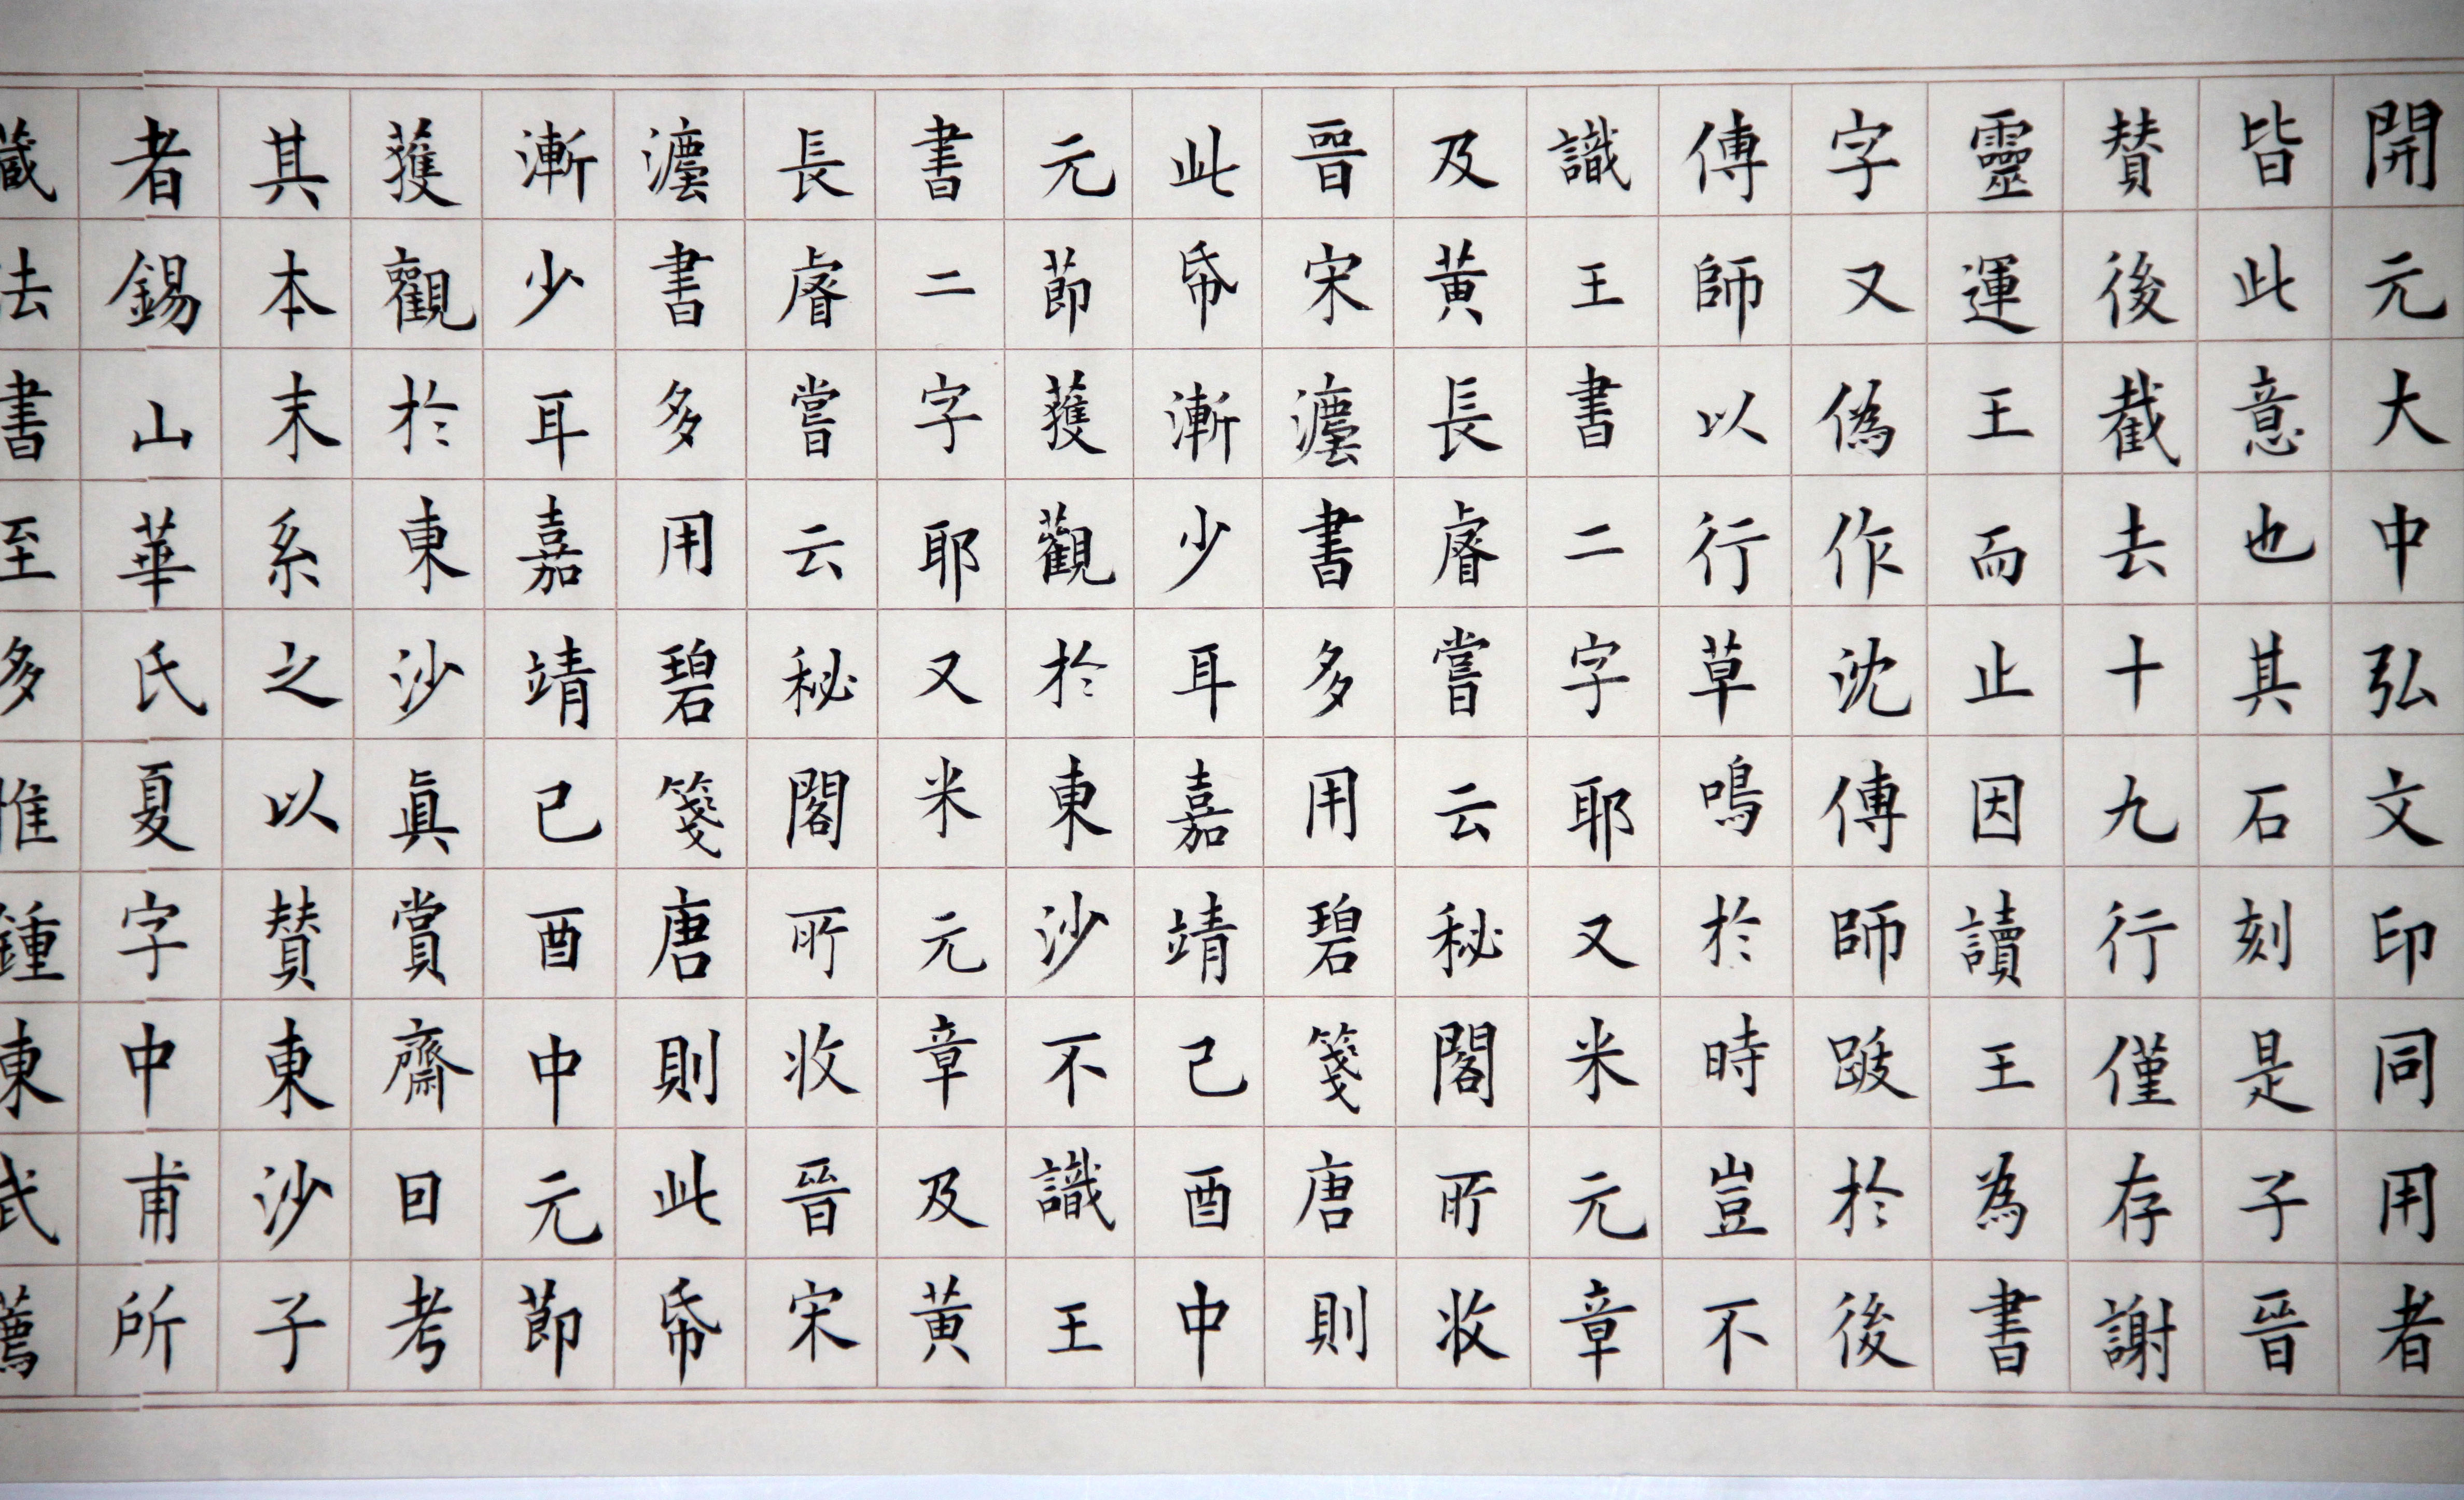 開元大中弘文印同用者
皆此意也其石刻是子晉
贊後截去十九行僅存謝
靈運王而止因讀王為書
字又偽作沈傳師跋於後
傳師以行草鳴於時豈不
識王書二字耶又米元章
及黃長睿嘗云秘閣所收
晉宋瀍書多用碧箋唐則
此帋漸少耳嘉靖己酉中
元節獲觀於東沙不識王
書二字耶又米元章及黃
長睿嘗云秘閣所收晉宋
瀍書多用碧箋唐則此帋
漸少耳嘉靖己酉中元節
獲觀於東沙真賞齋因考
其本末系之以贊東沙子
者錫山華氏夏字中甫所
藏法書至多惟鍾東武薦